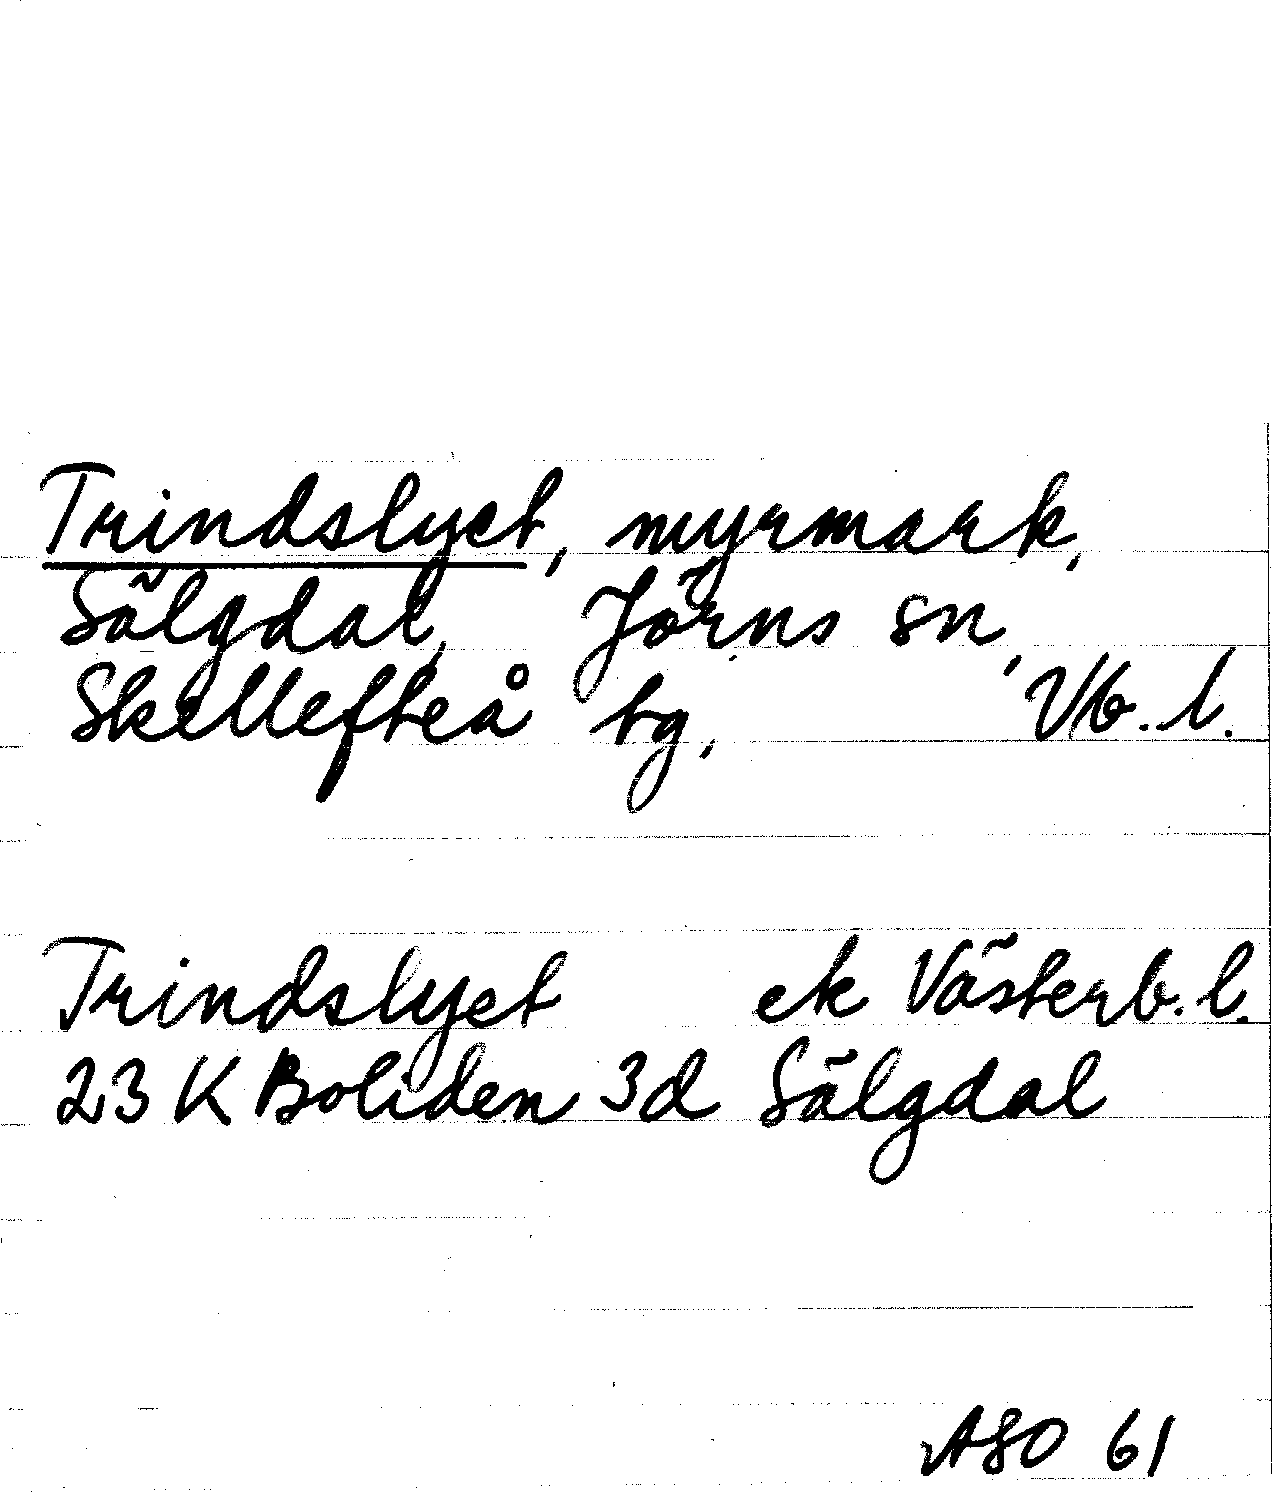 Trindslyet, myrmark,
Sälgdal, Jörns sn,
Skellefteå tg, Vb. l.
Trindslyet ek Västerb. l.
23 K Boliden 3d Sälgdal
ASO 61